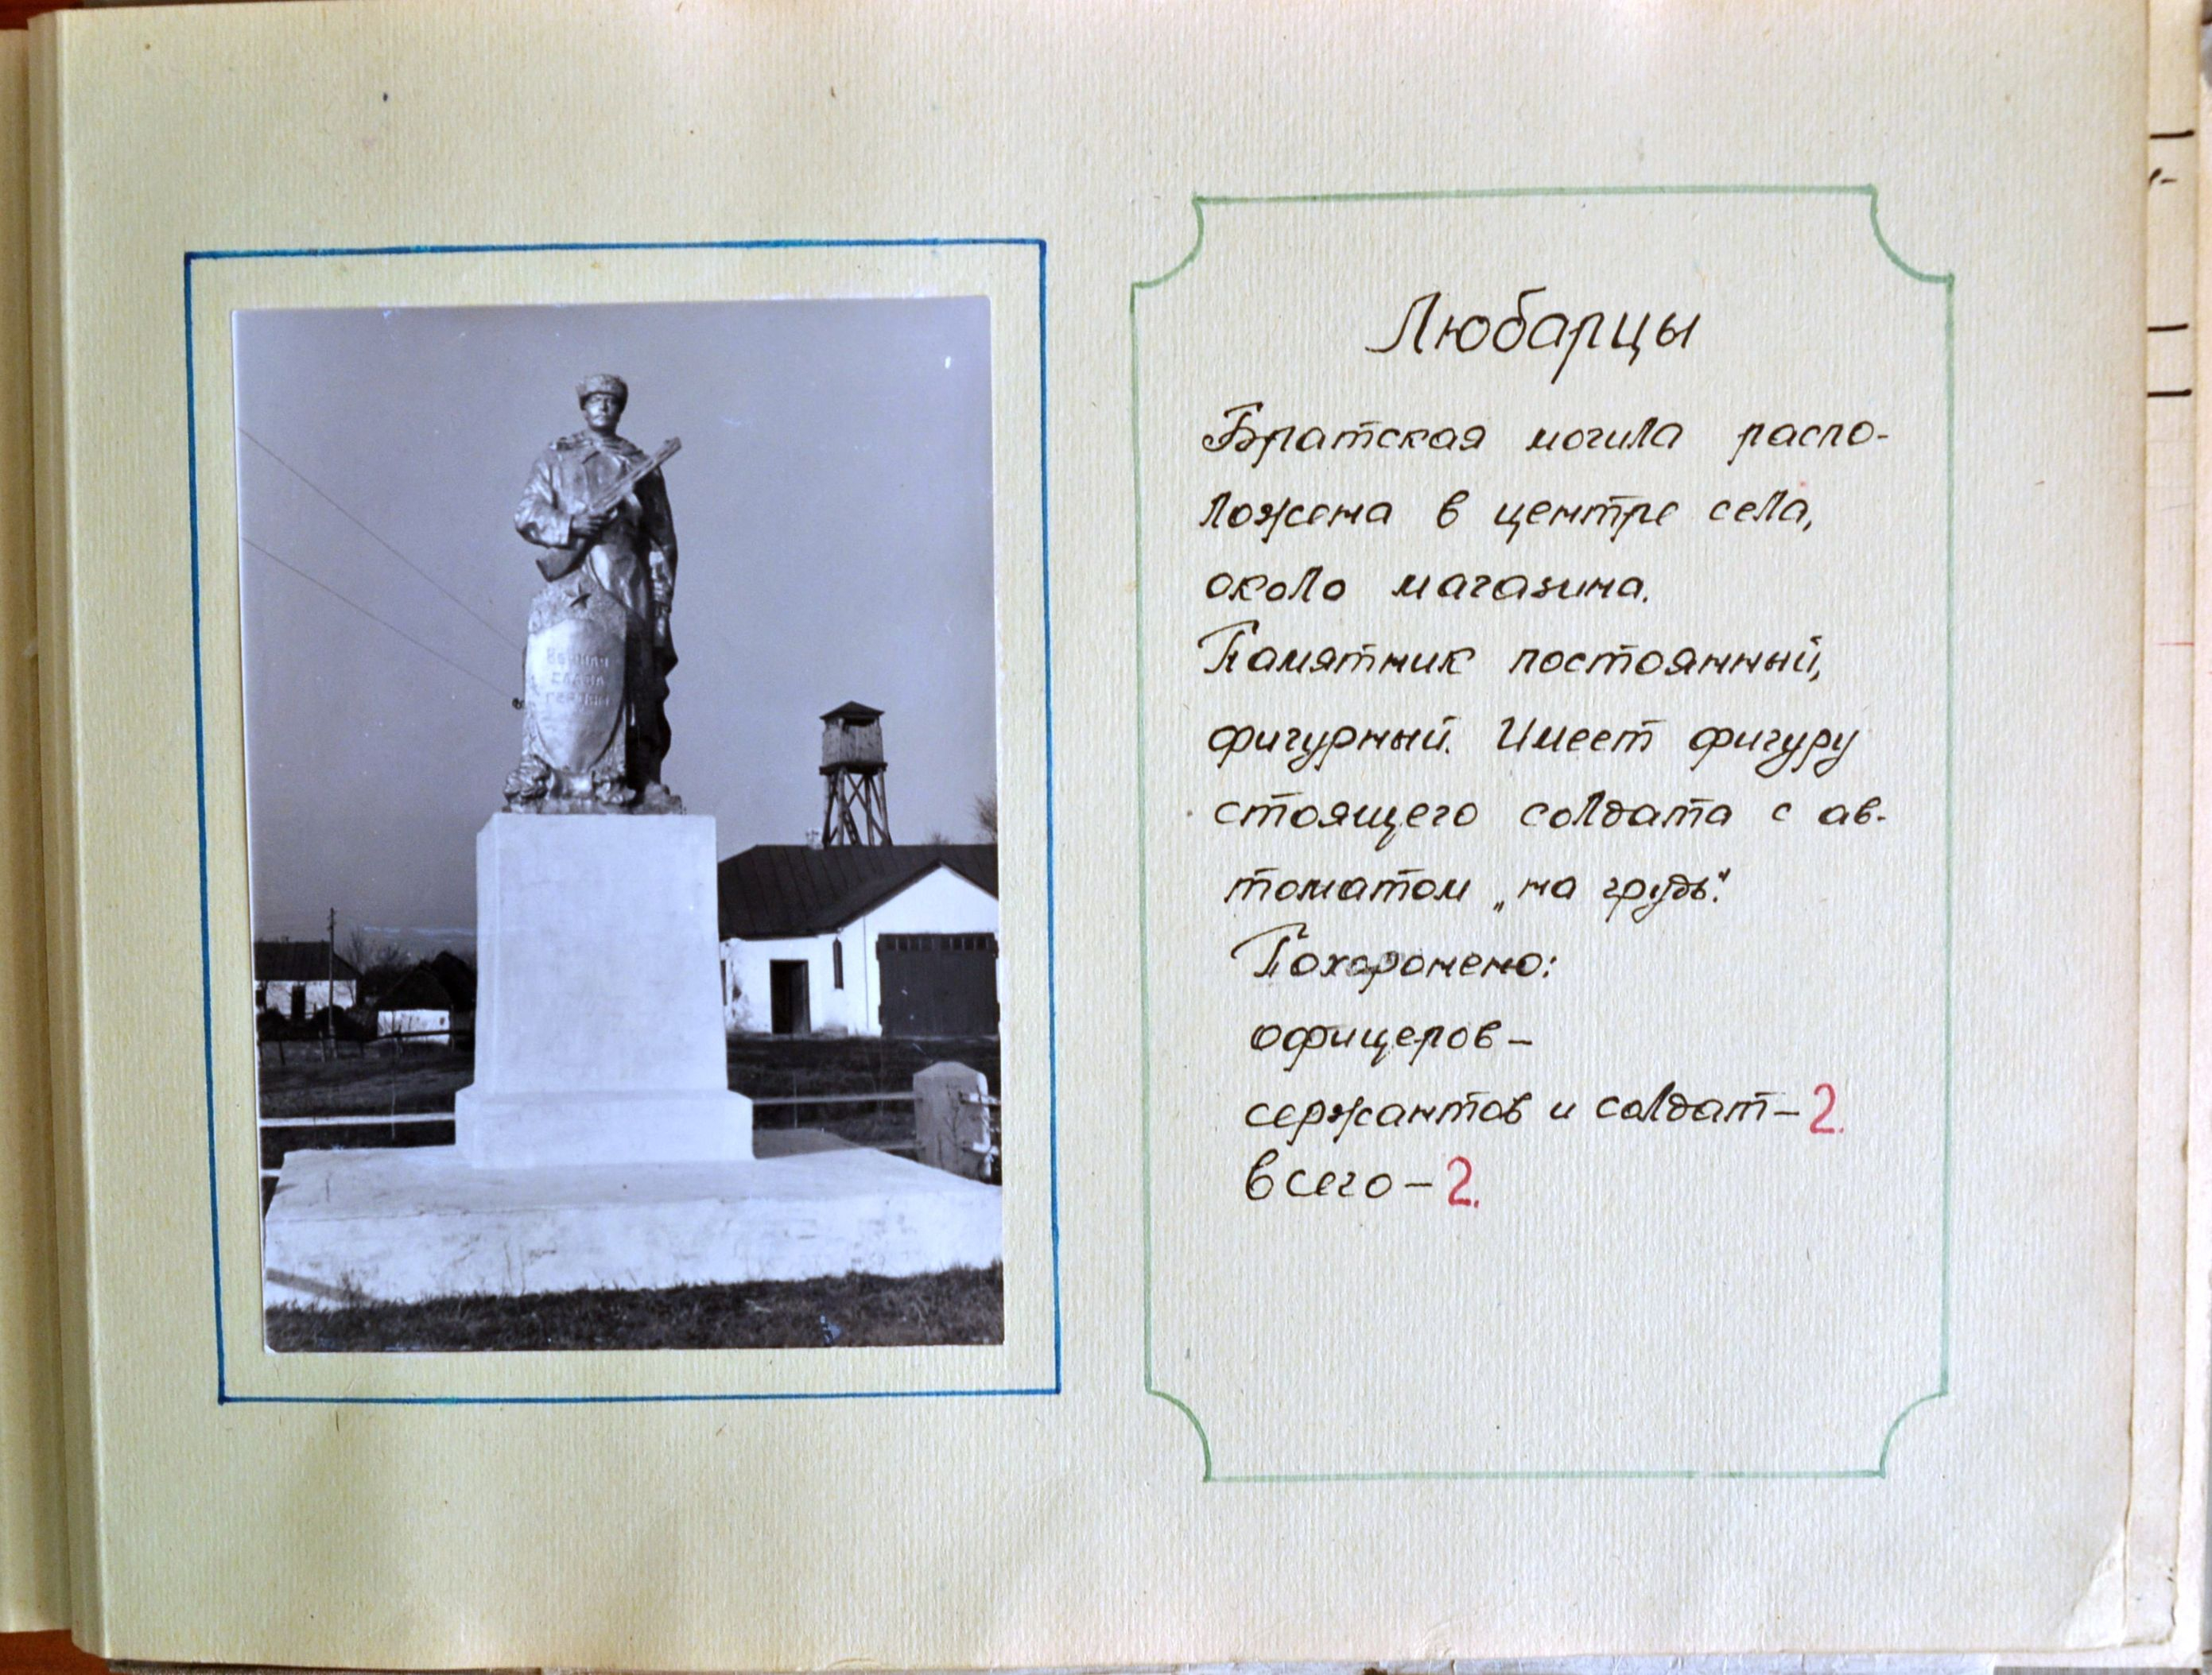 Вечная
слава
героям
Любарцы
Братская могила распо-
ложена в центре села,
около магазина.
Памятник постоянный,
фигурный. Имеет фигуру
стоящего солдата с ав-
томатом „на грудь".
Похоронено:
офицеров–
сержантов и солдат–2.
всего–2.